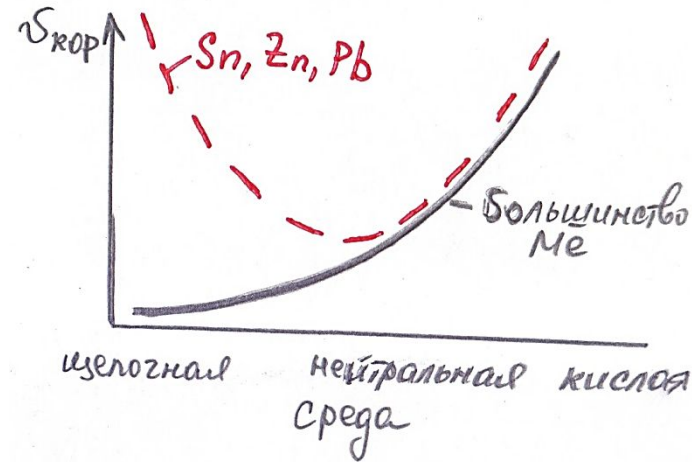 υкор
Sn, Zn, Pb
Большинство
Ме
щелочная нейтральная кислая
среда